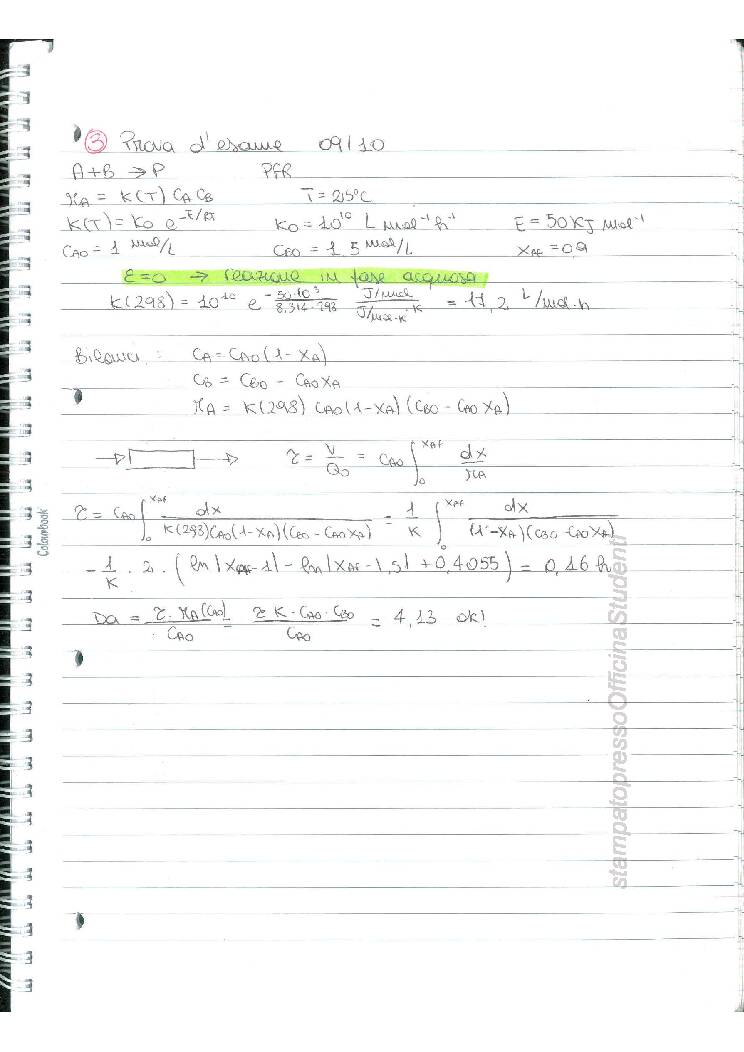 ③ Prova d'esame 09/10
A+B → P PFR
rA = K(T) CA CB T = 25°C
K(T) = K0 e^(-E/RT) K0 = 10^10 L mol⁻¹ h⁻¹ E = 50 KJ mol⁻¹
CA0 = 1 mol/L CB0 = 1,5 mol/L XAF = 0,9
ε=0 → reazione in fase acquosa
K(298) = 10^10 e^(-50·10³/8,314·298 J/mol / J/mol·K · K) = 17,2 L/mol·h
Bilanci: CA = CA0 (1-XA)
CB = CB0 - CA0 XA
rA = K(298) CA0 (1-XA)(CB0 - CA0 XA)
τ = V/Q0 = CA0 ∫₀^XAF dx/rA
τ = CA0 ∫₀^XAF dx/(K(298) CA0 (1-XA)(CB0 - CA0 XA)) = 1/K ∫₀^XAF dx/((1-XA)(CB0 - CA0 XA))
- 1/K · 2 · (ln|XAF-1| - ln|XAF-1,5| + 0,4055) = 0,16 h
Da = τ · rA(CA0)/CA0 = τ K · CA0 · CB0/CA0 = 4,13 ok!
Colourbook
stampatopressoOfficinaStudenti